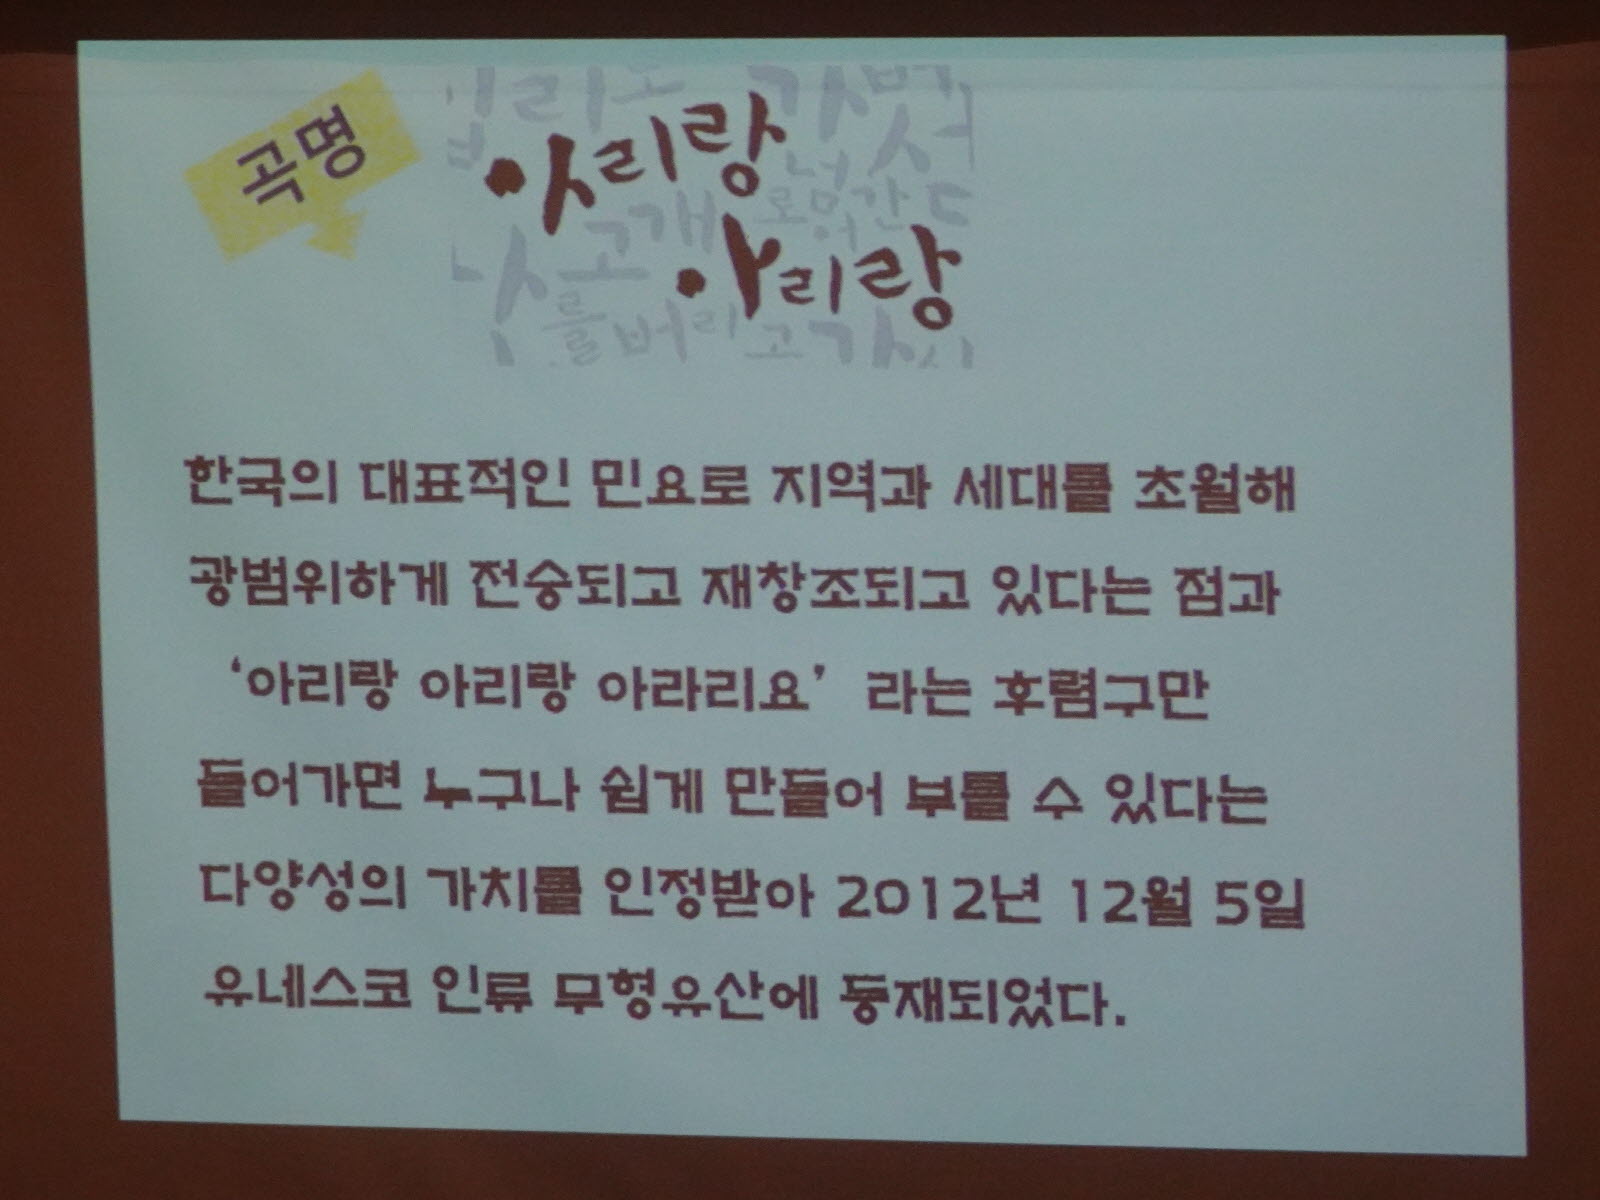 곡명
아리랑
아리랑
한국의 대표적인 민요로 지역과 세대를 초월해
광범위하게 전승되고 재창조되고 있다는 점과
‘아리랑 아리랑 아라리요’ 라는 후렴구만
들어가면 누구나 쉽게 만들어 부를 수 있다는
다양성의 가치를 인정받아 2012년 12월 5일
유네스코 인류 무형유산에 등재되었다.